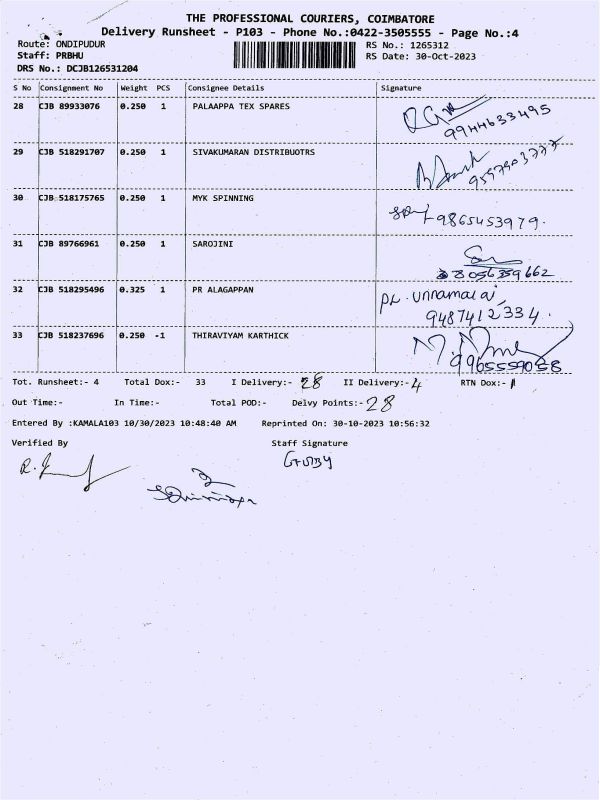 THE PROFESSIONAL COURIERS, COIMBATORE
Delivery Runsheet - P103 - Phone No.:0422-3505555 - Page No.:4
Route: ONDIPUDUR RS No.: 1265312
Staff: PRBHU RS Date: 30-Oct-2023
DRS No.: DCJB126531204
S No Consignment No Weight PCS Consignee Details Signature
28 CJB 89933076 0.250 1 PALAAPPA TEX SPARES
9944633495
29 CJB 518291707 0.250 1 SIVAKUMARAN DISTRIBUOTRS
9597903777
30 CJB 518175765 0.250 1 MYK SPINNING
9865453979.
31 CJB 89766961 0.250 1 SAROJINI
8056359662
32 CJB 518295496 0.325 1 PR ALAGAPPAN PL. unnamalai,
9487412334.
33 CJB 518237696 0.250 -1 THIRAVIYAM KARTHICK
9965559058
Tot. Runsheet:- 4 Total Dox:- 33 I Delivery:- 28 II Delivery:- 4 RTN Dox:- 1
Out Time:- In Time:- Total POD:- Delvy Points:- 28
Entered By :KAMALA103 10/30/2023 10:48:40 AM Reprinted On: 30-10-2023 10:56:32
Verified By Staff Signature